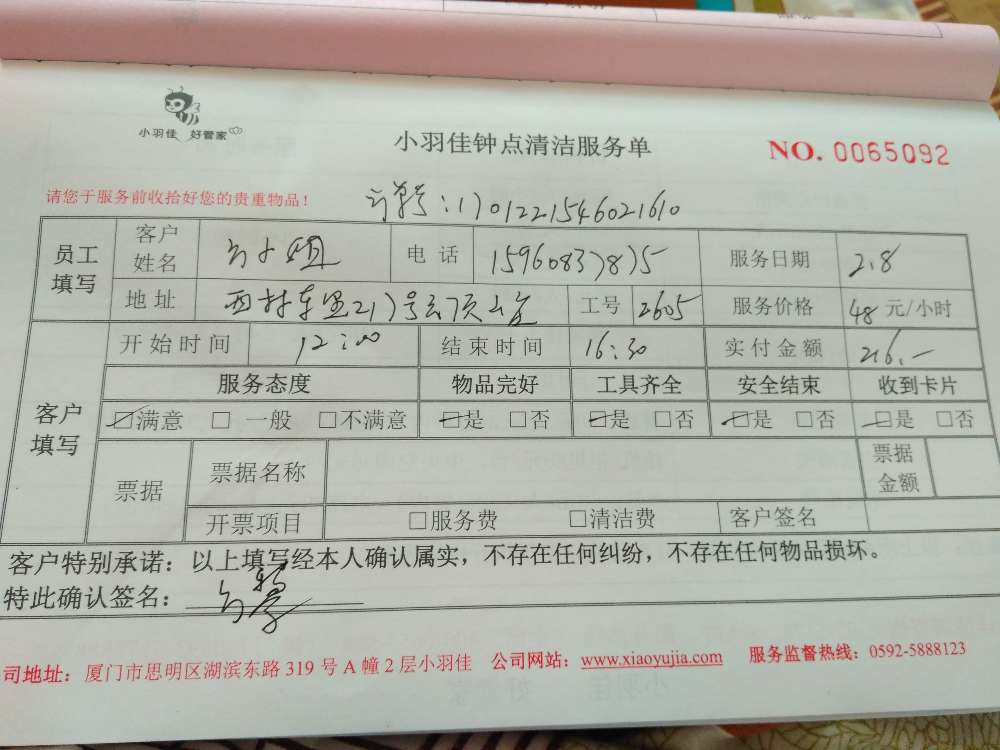 小羽佳 好管家
小羽佳钟点清洁服务单
NO. 0065092
请您于服务前收拾好您的贵重物品！
订单号：1701221546021610
员工填写
客户姓名 小姐 电话 15960837875 服务日期 2.8
地址 西村东里217号 工号 2605 服务价格 48 元/小时
客户填写
开始时间 12:00 结束时间 16:30 实付金额 216.-
服务态度 物品完好 工具齐全 安全结束 收到卡片
☑满意 □ 一般 □不满意 ☑是 □否 ☑是 □否 ☑是 □否 ☑是 □否
票据 票据名称 票据金额
开票项目 □服务费 □清洁费 客户签名
客户特别承诺：以上填写经本人确认属实，不存在任何纠纷，不存在任何物品损坏。
特此确认签名：
司地址：厦门市思明区湖滨东路 319 号 A 幢 2 层小羽佳 公司网站：www.xiaoyujia.com 服务监督热线：0592-5888123